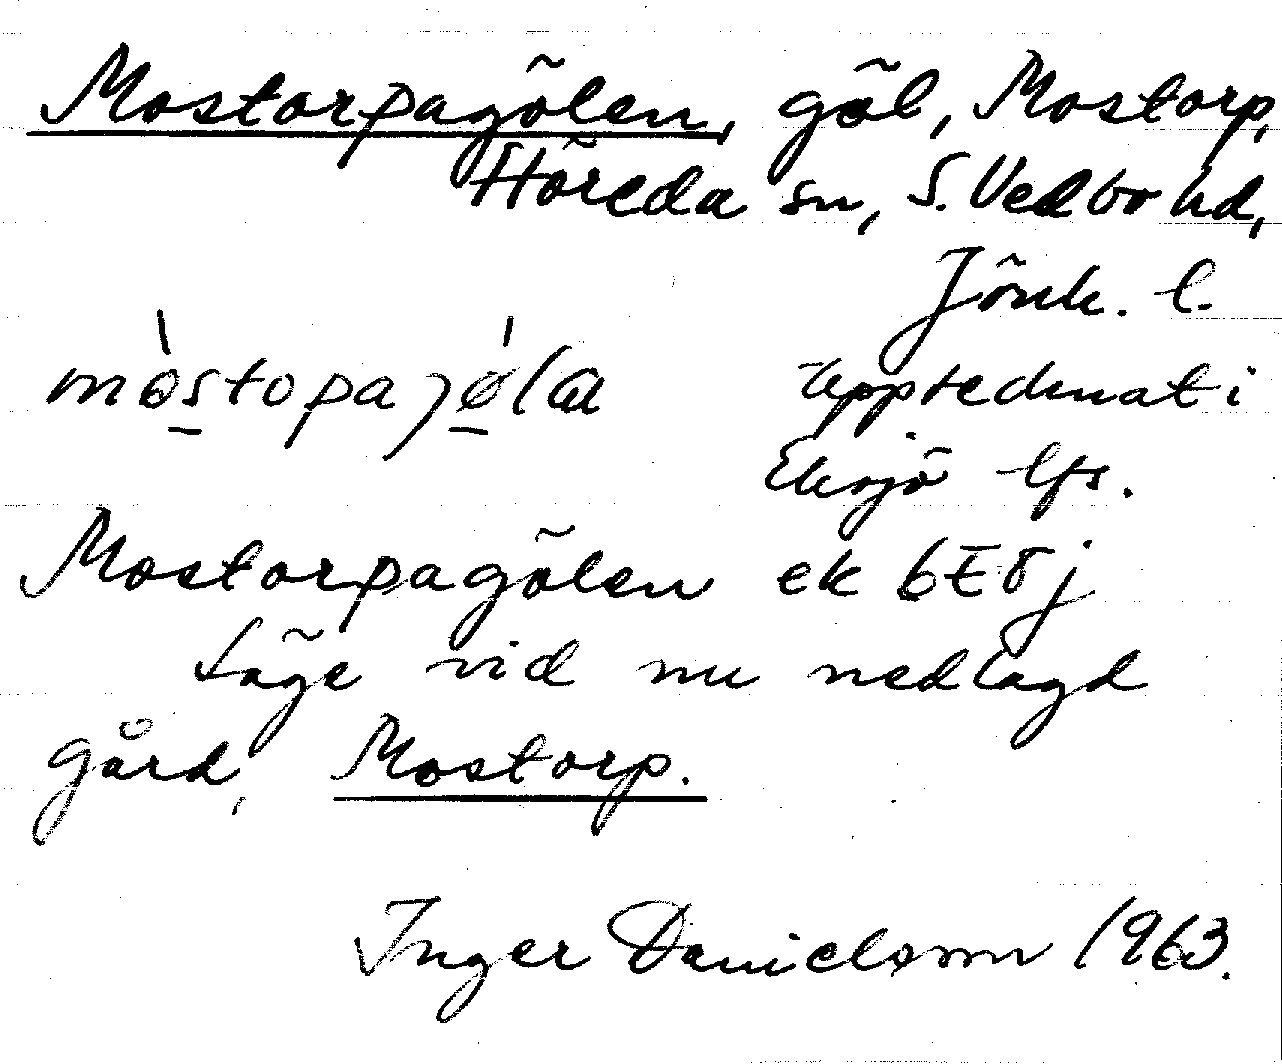 Mostorpagölen, göl, Mostorp,
Höreda sn, S. Vedbo hd,
Jönk. l.
Upptecknat i
Eksjö lfs.
Mostorpagölen ek 6E8j
Läge vid nu nedlagd
gård, Mostorp.
Inger Danielsson 1963.